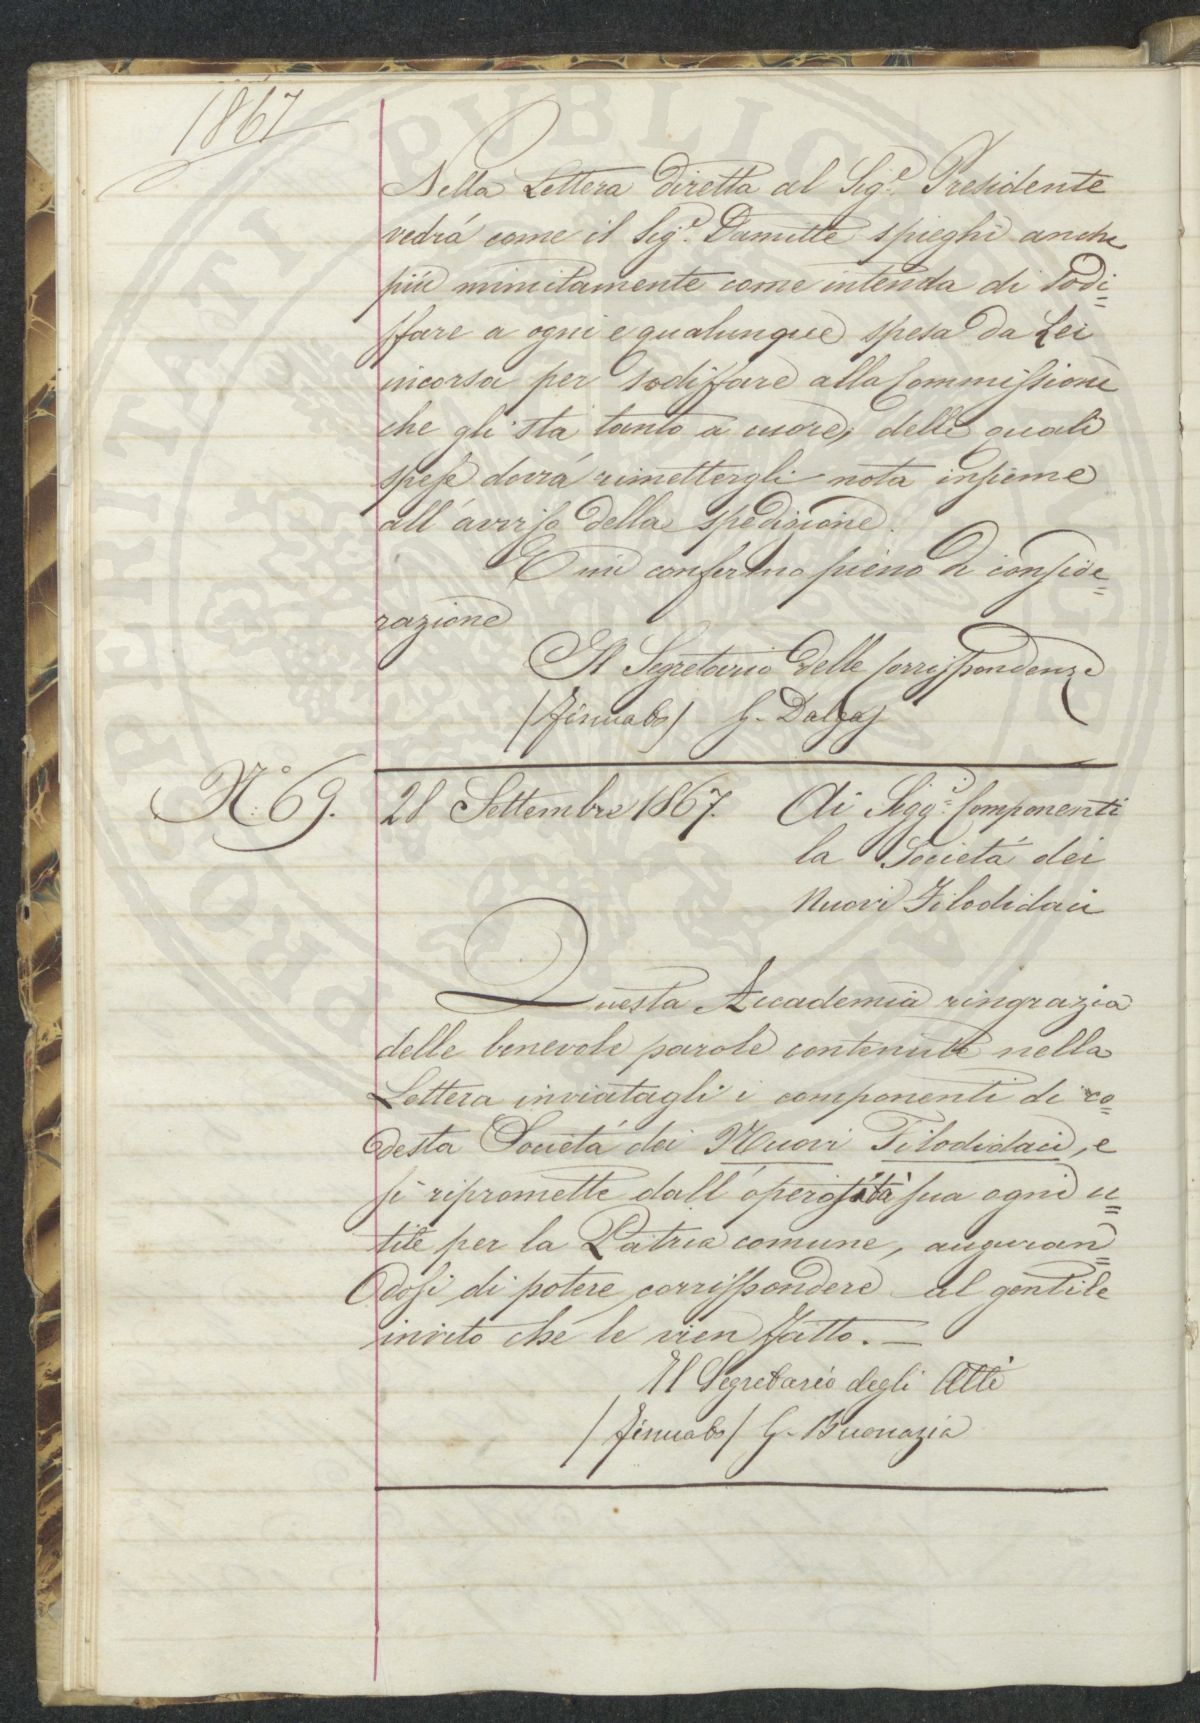 1867
Nella Lettera diretta al Sig.e Presidente
vedrá come il Sig.e Damitte spieghi anche
piú minutamente come intenda di Sodi=
sfare a ogni e qualunque spesa da Lei
incorsa per sodisfare alla Commissione
che gli stá tanto a cuore, delle quali
spese dovrá rimettergli nota insieme
all'avviso della spedizione.
E mi confermo pieno di conside=
razione
Il Segretario delle Corrispondenze
/firmato/ G. Dalgas
N.o 69.
28 Settembre 1867. Ai Sigg.i Componenti
la Societá dei
Nuovi Filodidaci
Questa Accademia ringrazia
delle benevole parole contenute nella
Lettera inviatagli i componenti di co=
desta Societá dei Nuovi Filodidaci, e
si ripromette dall'operosità sua ogni u=
tile per la Patria comune, auguran=
dosi di potere corrispondere al gentile
invito che le vien fatto. —
Il Segretario degli Atti
/firmato/ G. Buonazia
PROPERITATI PUBLICAE AUG